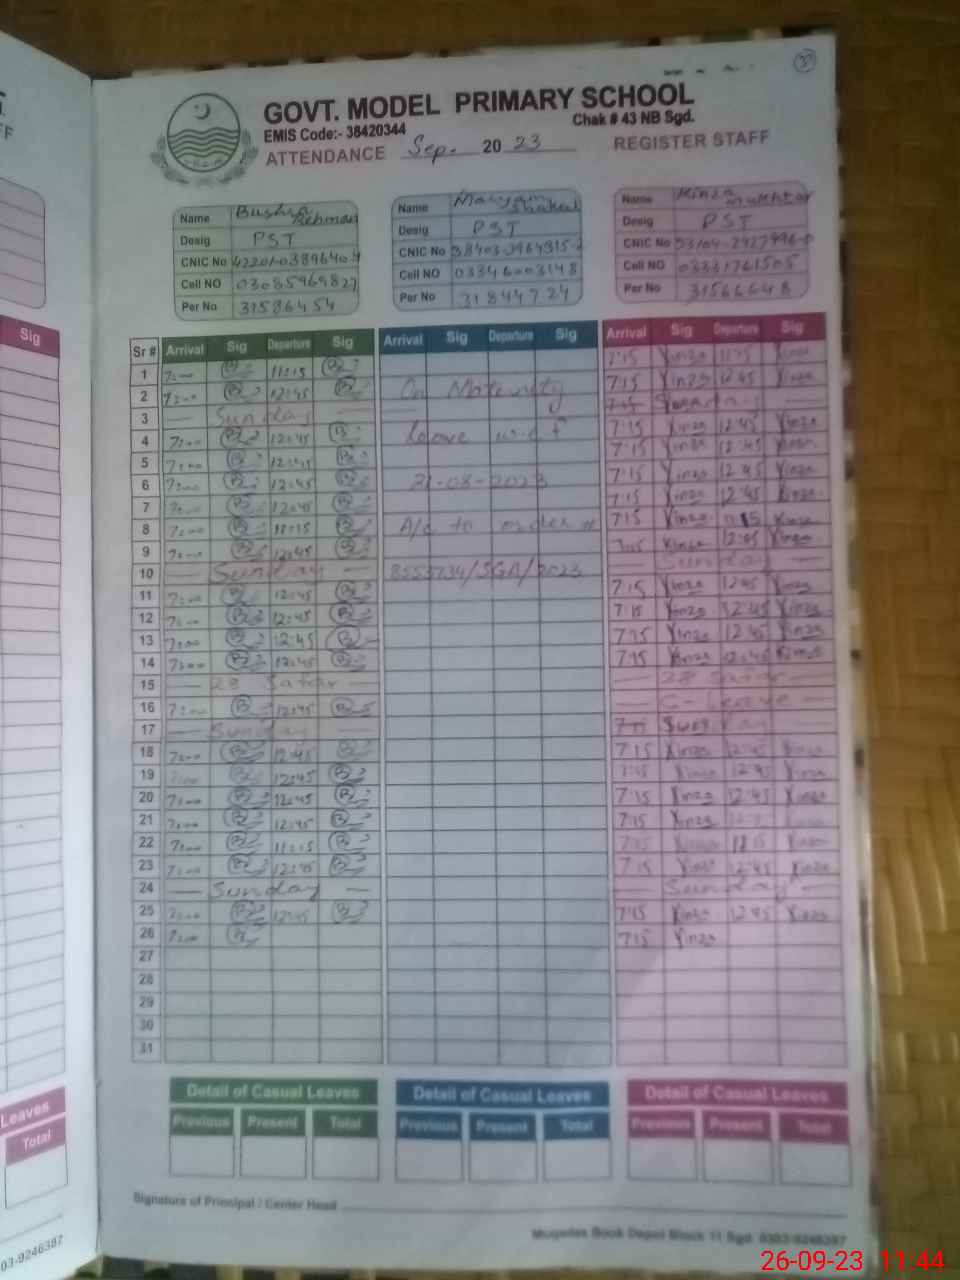 GOVT. MODEL PRIMARY SCHOOL
EMIS Code:- 38420344 Chak # 43 NB Sgd.
ATTENDANCE Sep. 2023 REGISTER STAFF
Name Bushra Rehman
Desig PST
CNIC No
Cell NO 03085969827
Per No 31586454
Name Maryam Shakeel
Desig PST
CNIC No
Cell NO 03346003148
Per No 31844724
Name Kinza Mukhtar
Desig PST
CNIC No
Cell NO 03331761505
Per No 31566648
Sr # Arrival Sig Departure Sig Arrival Sig Departure Sig Arrival Sig Departure Sig
1 7:00 11:15 7:15 Kinza 11:15 Kinza
2 7:00 12:45 On Maternity 7:15 Kinza 12:45 Kinza
3 Sunday Sunday
4 7:00 12:45 leave w.e.f 7:15 Kinza 12:45 Kinza
5 7:00 12:45 7:15 Kinza 12:45 Kinza
6 7:00 12:45 21-08-2023 7:15 Kinza 12:45 Kinza
7 7:00 12:45 7:15 Kinza 12:45 Kinza
8 7:00 11:15 A/c to order # 7:15 Kinza 11:15 Kinza
9 7:00 12:45 7:15 Kinza 12:45 Kinza
10 Sunday 8555734/SGA/2023 Sunday
11 7:00 12:45 7:15 Kinza 12:45 Kinza
12 7:00 12:45 7:15 Kinza 12:45 Kinza
13 7:00 12:45 7:15 Kinza 12:45 Kinza
14 7:00 12:45 7:15 Kinza 12:45 Kinza
15 28 Safar 28 Safar
16 7:00 12:45 C-Leave
17 Sunday Sunday
18 7:00 12:45 7:15 Kinza 12:45 Kinza
19 7:00 12:45 7:15 Kinza 12:45 Kinza
20 7:00 12:45 7:15 Kinza 12:45 Kinza
21 7:00 12:45 7:15 Kinza 12:45 Kinza
22 7:00 11:15 7:15 Kinza 11:15 Kinza
23 7:00 12:45 7:15 Kinza 12:45 Kinza
24 Sunday Sunday
25 7:00 12:45 7:15 Kinza 12:45 Kinza
26 7:00 7:15 Kinza
27
28
29
30
31
Detail of Casual Leaves Detail of Casual Leaves Detail of Casual Leaves
Previous Present Total Previous Present Total Previous Present Total
Signature of Principal / Center Head
Book Depot Block 11 Sgd. 0303-9246387
Sig
Leaves
Total
03-9246387
26-09-23 11:44